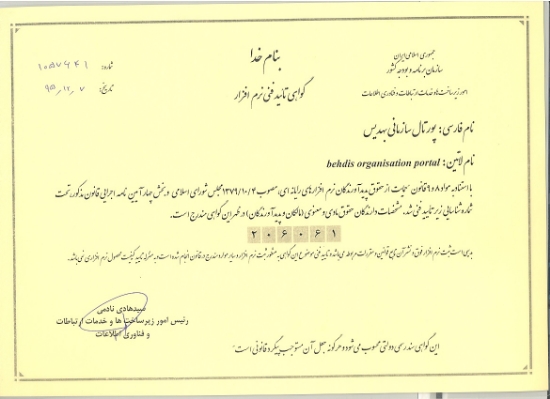 بنام خدا
گواهی تائید فنی نرم افزار
جمهوری اسلامی ایران
سازمان برنامه و بودجه کشور
امور زیرساخت ها و خدمات ارتباطات و فناوری اطلاعات
شماره: ۱۰۵۷۶۴۱
تاریخ: ۹۵/۱۲/۷
نام فارسی: پورتال سازمانی بهدیس
نام لاتین: behdis organisation portal
با استناد به مواد ۸ و ۹ قانون حمایت از حقوق پدیدآورندگان نرم افزارهای رایانه ای، مصوب ۱۳۷۹/۱۰/۴ مجلس شورای اسلامی و بخش چهار آیین نامه اجرائی قانون مذکور، تحت
شماره شناسایی زیر تایید فنی شد. مشخصات دارندگان حقوق مادی و معنوی (مالکان و پدیدآورندگان) در ظهر این گواهی مندرج است.
۲۰۶۰۶۱
بدیهی است ثبت نرم افزار فوق و نشر آن تابع قوانین و مقررات مربوطه می باشد و تایید فنی موضوع این گواهی به منظور ثبت نرم افزار و سایر موارد مندرج در قانون انجام شده است و به منزله تایید کیفیت محصول نرم افزاری نمی باشد.
سیدهادی نادمی
رئیس امور زیرساخت ها و خدمات ارتباطات
و فناوری اطلاعات
این گواهی سند رسمی دولتی محسوب می شود و هرگونه جعل آن مستوجب پیگرد قانونی است"